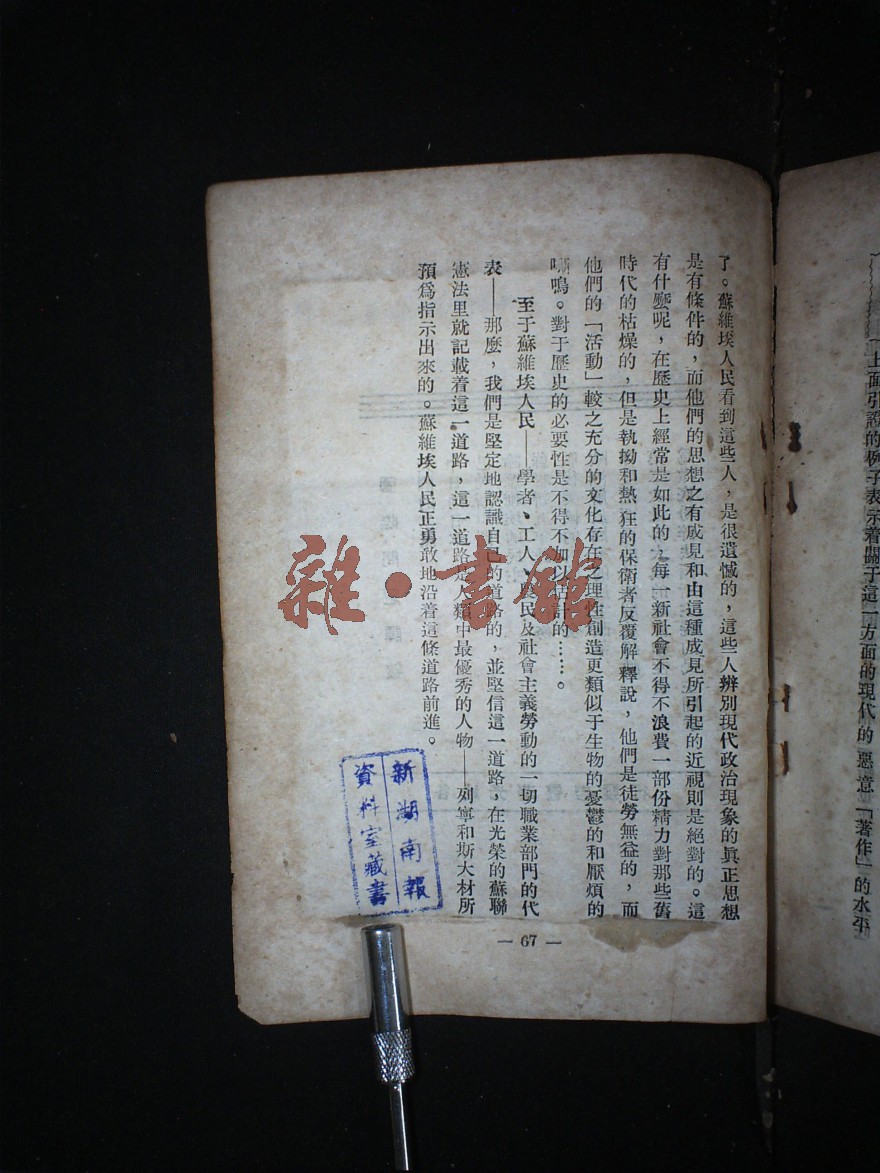 上面引證的例子表示着關于這一方面的現代的惡意「著作」的水平
了。蘇維埃人民看到這些人，是很遺憾的，這些人辨別現代政治現象的眞正思想
是有條件的，而他們的思想之有成見和由這種成見所引起的近視則是絕對的。這
有什麼呢，在歷史上經常是如此的，每一新社會不得不浪費一部份精力對那些舊
時代的枯燥的，但是執拗和熱狂的保衛者反覆解釋說，他們是徒勞無益的，而
他們的「活動」較之充分的文化存在之理性創造更類似于生物的憂鬱的和厭煩的
嘶鳴。對于歷史的必要性是不得不加以估計的……。
至于蘇維埃人民——學者、工人、農民及社會主義勞動的一切職業部門的代
表——那麼，我們是堅定地認識自己的道路的，並堅信這一道路，在光榮的蘇聯
憲法里就記載着這一道路，這一道路是人類中最優秀的人物——列寧和斯大林所
預爲指示出來的。蘇維埃人民正勇敢地沿着這條道路前進。
— 67 —
新湖南報
資料室藏書
雜·書館